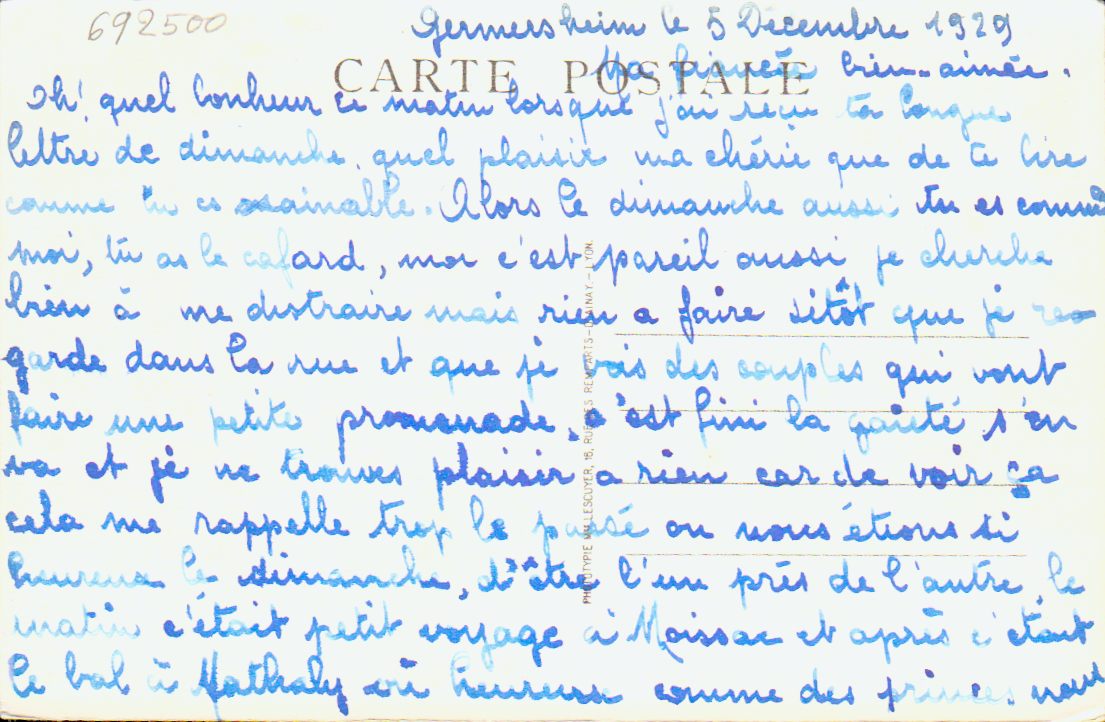 692500
Germersheim le 5 Décembre 1929
CARTE POSTALE
Ma fiancée bien-aimée.
Oh! quel bonheur ce matin lorsque j'ai reçu ta longue
lettre de dimanche, quel plaisir ma chérie que de te lire
comme tu es aimable. Alors le dimanche aussi tu es comme
moi, tu as le cafard, moi c'est pareil aussi je cherche
bien à me distraire mais rien a faire sitôt que je re-
garde dans la rue et que je vois des couples qui vont
faire une petite promenade, c'est fini la gaieté s'en
va et je ne trouves plaisir a rien car de voir ça
cela me rappelle trop le passé ou nous étions si
heureux le dimanche, d'être l'un près de l'autre, le
matin c'était petit voyage à Moissac et après c'était
le bal à Mathaly où heureux comme des princes nous
PHOTOTYPIE M. LESCUYER, 16, RUE DES REMPARTS-D'AINAY.-LYON.